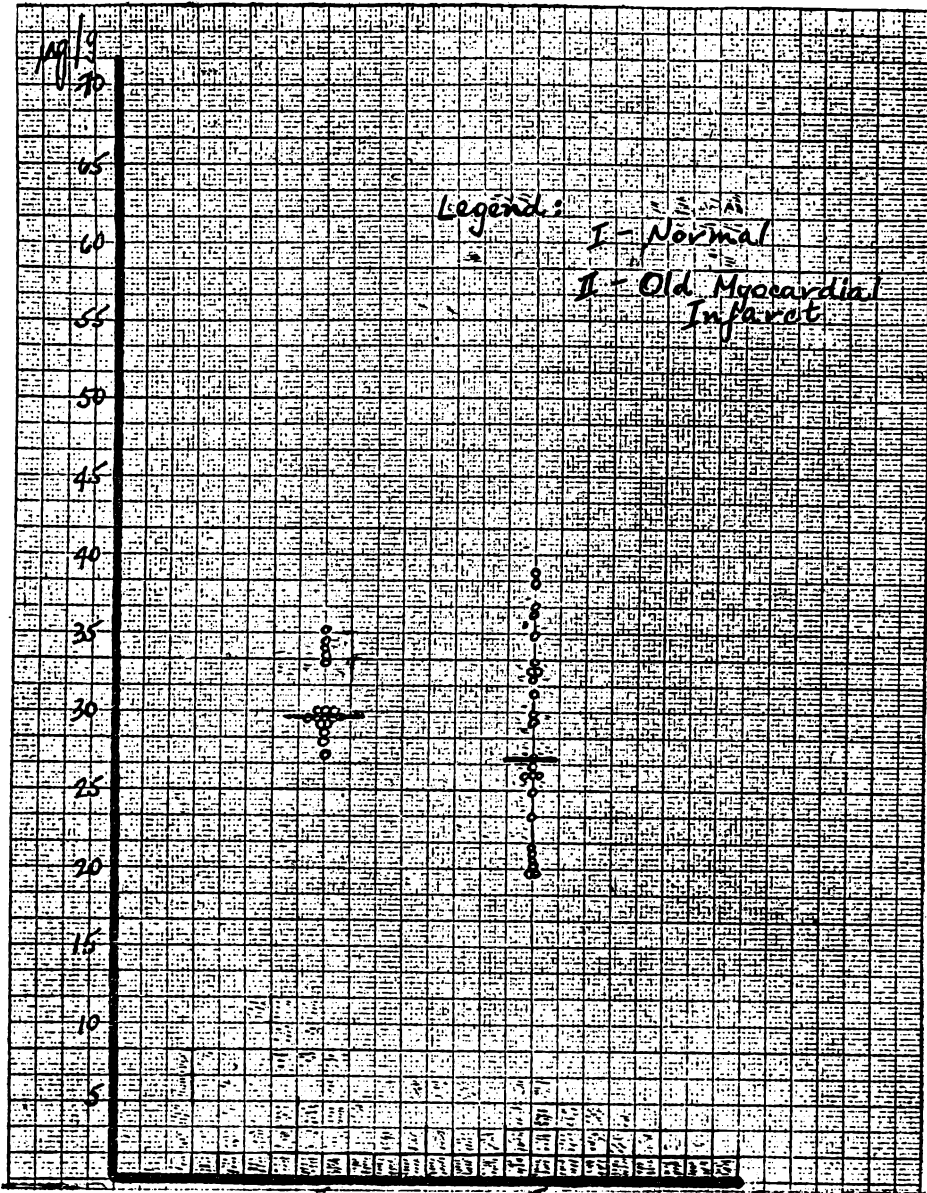 µg/g
70
65
60
55
50
45
40
35
30
25
20
15
10
5
Legend:
I - Normal
II - Old Myocardial
Infarct